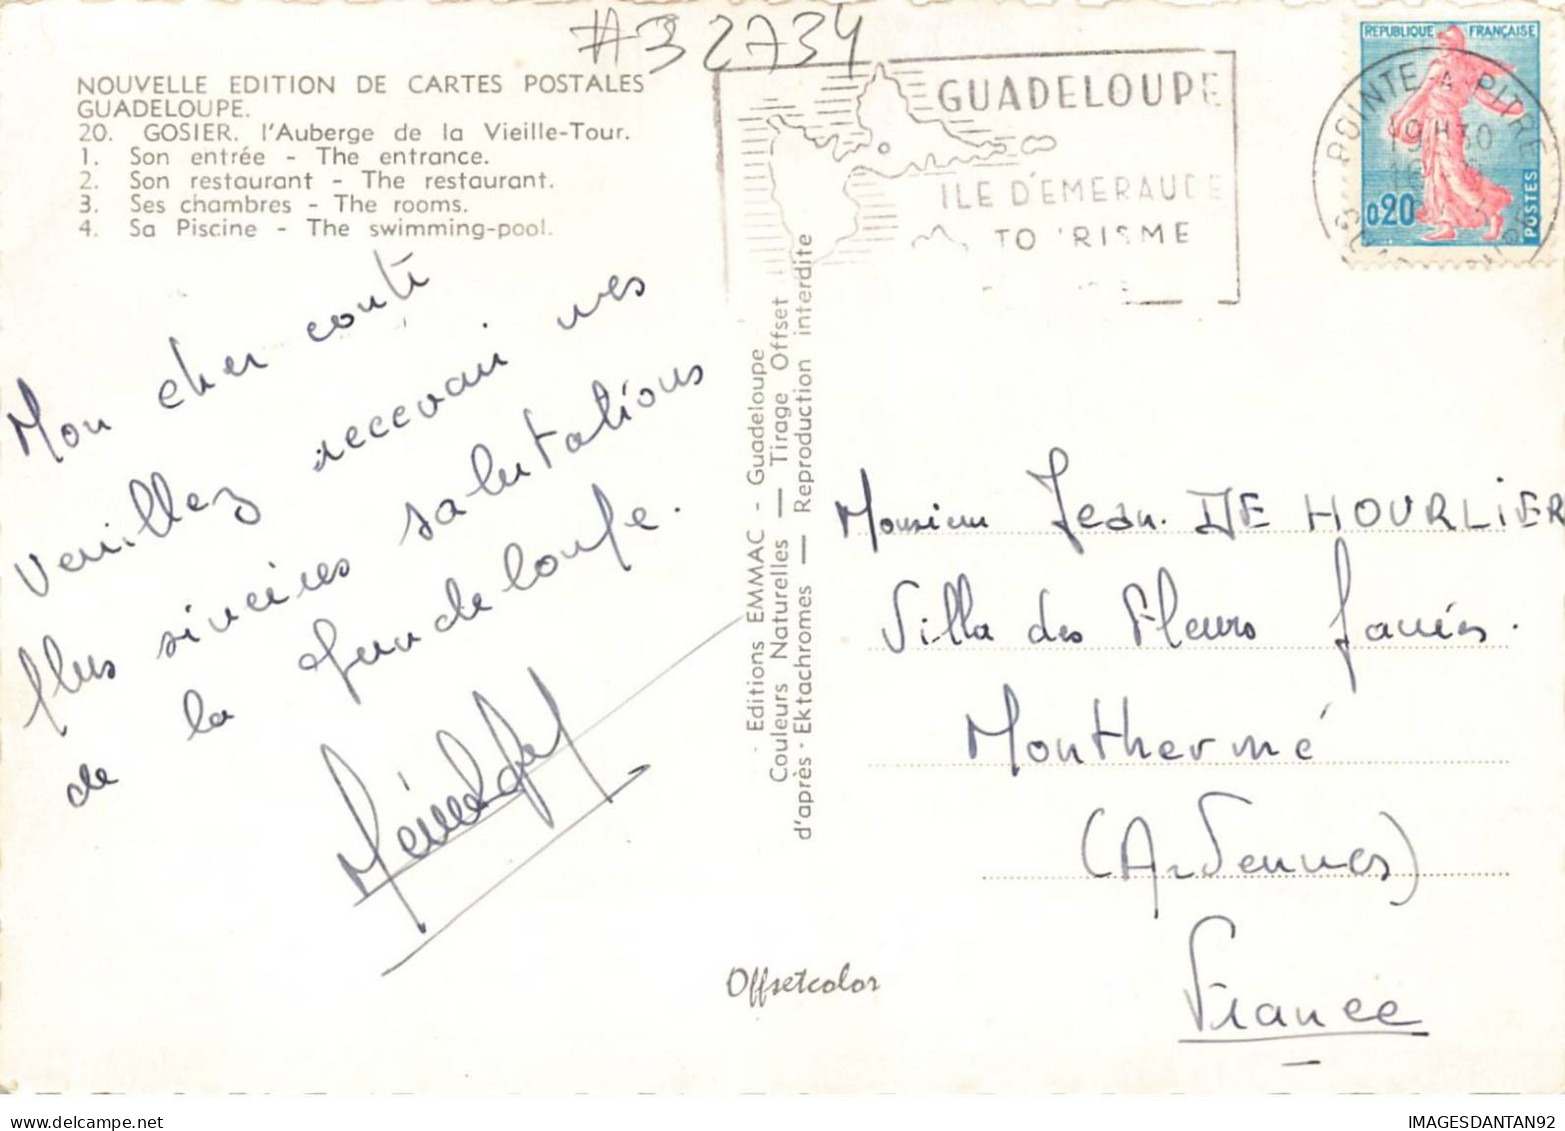 #32734
NOUVELLE EDITION DE CARTES POSTALES
GUADELOUPE.
20. GOSIER. l'Auberge de la Vieille-Tour.
1. Son entrée - The entrance.
2. Son restaurant - The restaurant.
3. Ses chambres - The rooms.
4. Sa Piscine - The swimming-pool.
Mon cher
veuillez recevoir mes
plus sincères salutations
de la Guadeloupe.
- Editions EMMAC - Guadeloupe
Couleurs Naturelles — Tirage Offset
d'après - Ektachromes — Reproduction interdite
Offsetcolor
GUADELOUPE
ILE D'EMERAUDE
TO RISME
REPUBLIQUE FRANÇAISE
0,20
POSTES
POINTE-A-PITRE
19H30
Monsieur Jean. DE HOURLIER
Villa des Fleurs
Monthermé
(Ardennes)
France
IMAGESDANTAN92